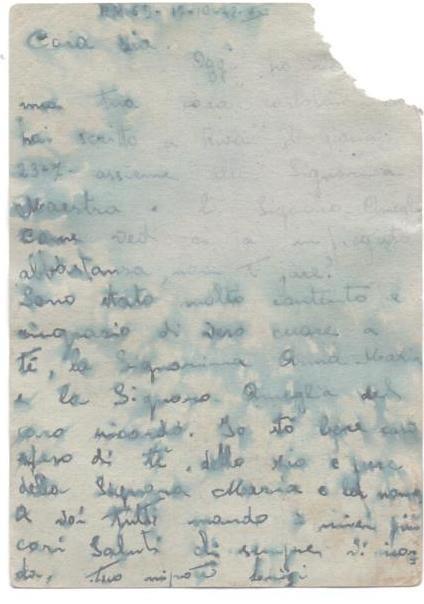 P.M. 69- 15-10-42-
Cara zia
Oggi ho
una tua cara cartolina
hai scritto a
23-7- assieme alla Signorina
Maestra e la Signora
Come vedi ci a impiegato
abbastanza, non ti pare?
Sono stato molto contento e
ringrazio di vero cuore a
té, la Signorina Anna Maria
e la Signora Queglia del
caro ricordo. Io stó bene così
spero di té, dello zio e pure
della Signora Maria e la nonna
A voi tutti mando i miei più
cari Saluti di sempre vi ricor
da, tuo nipote